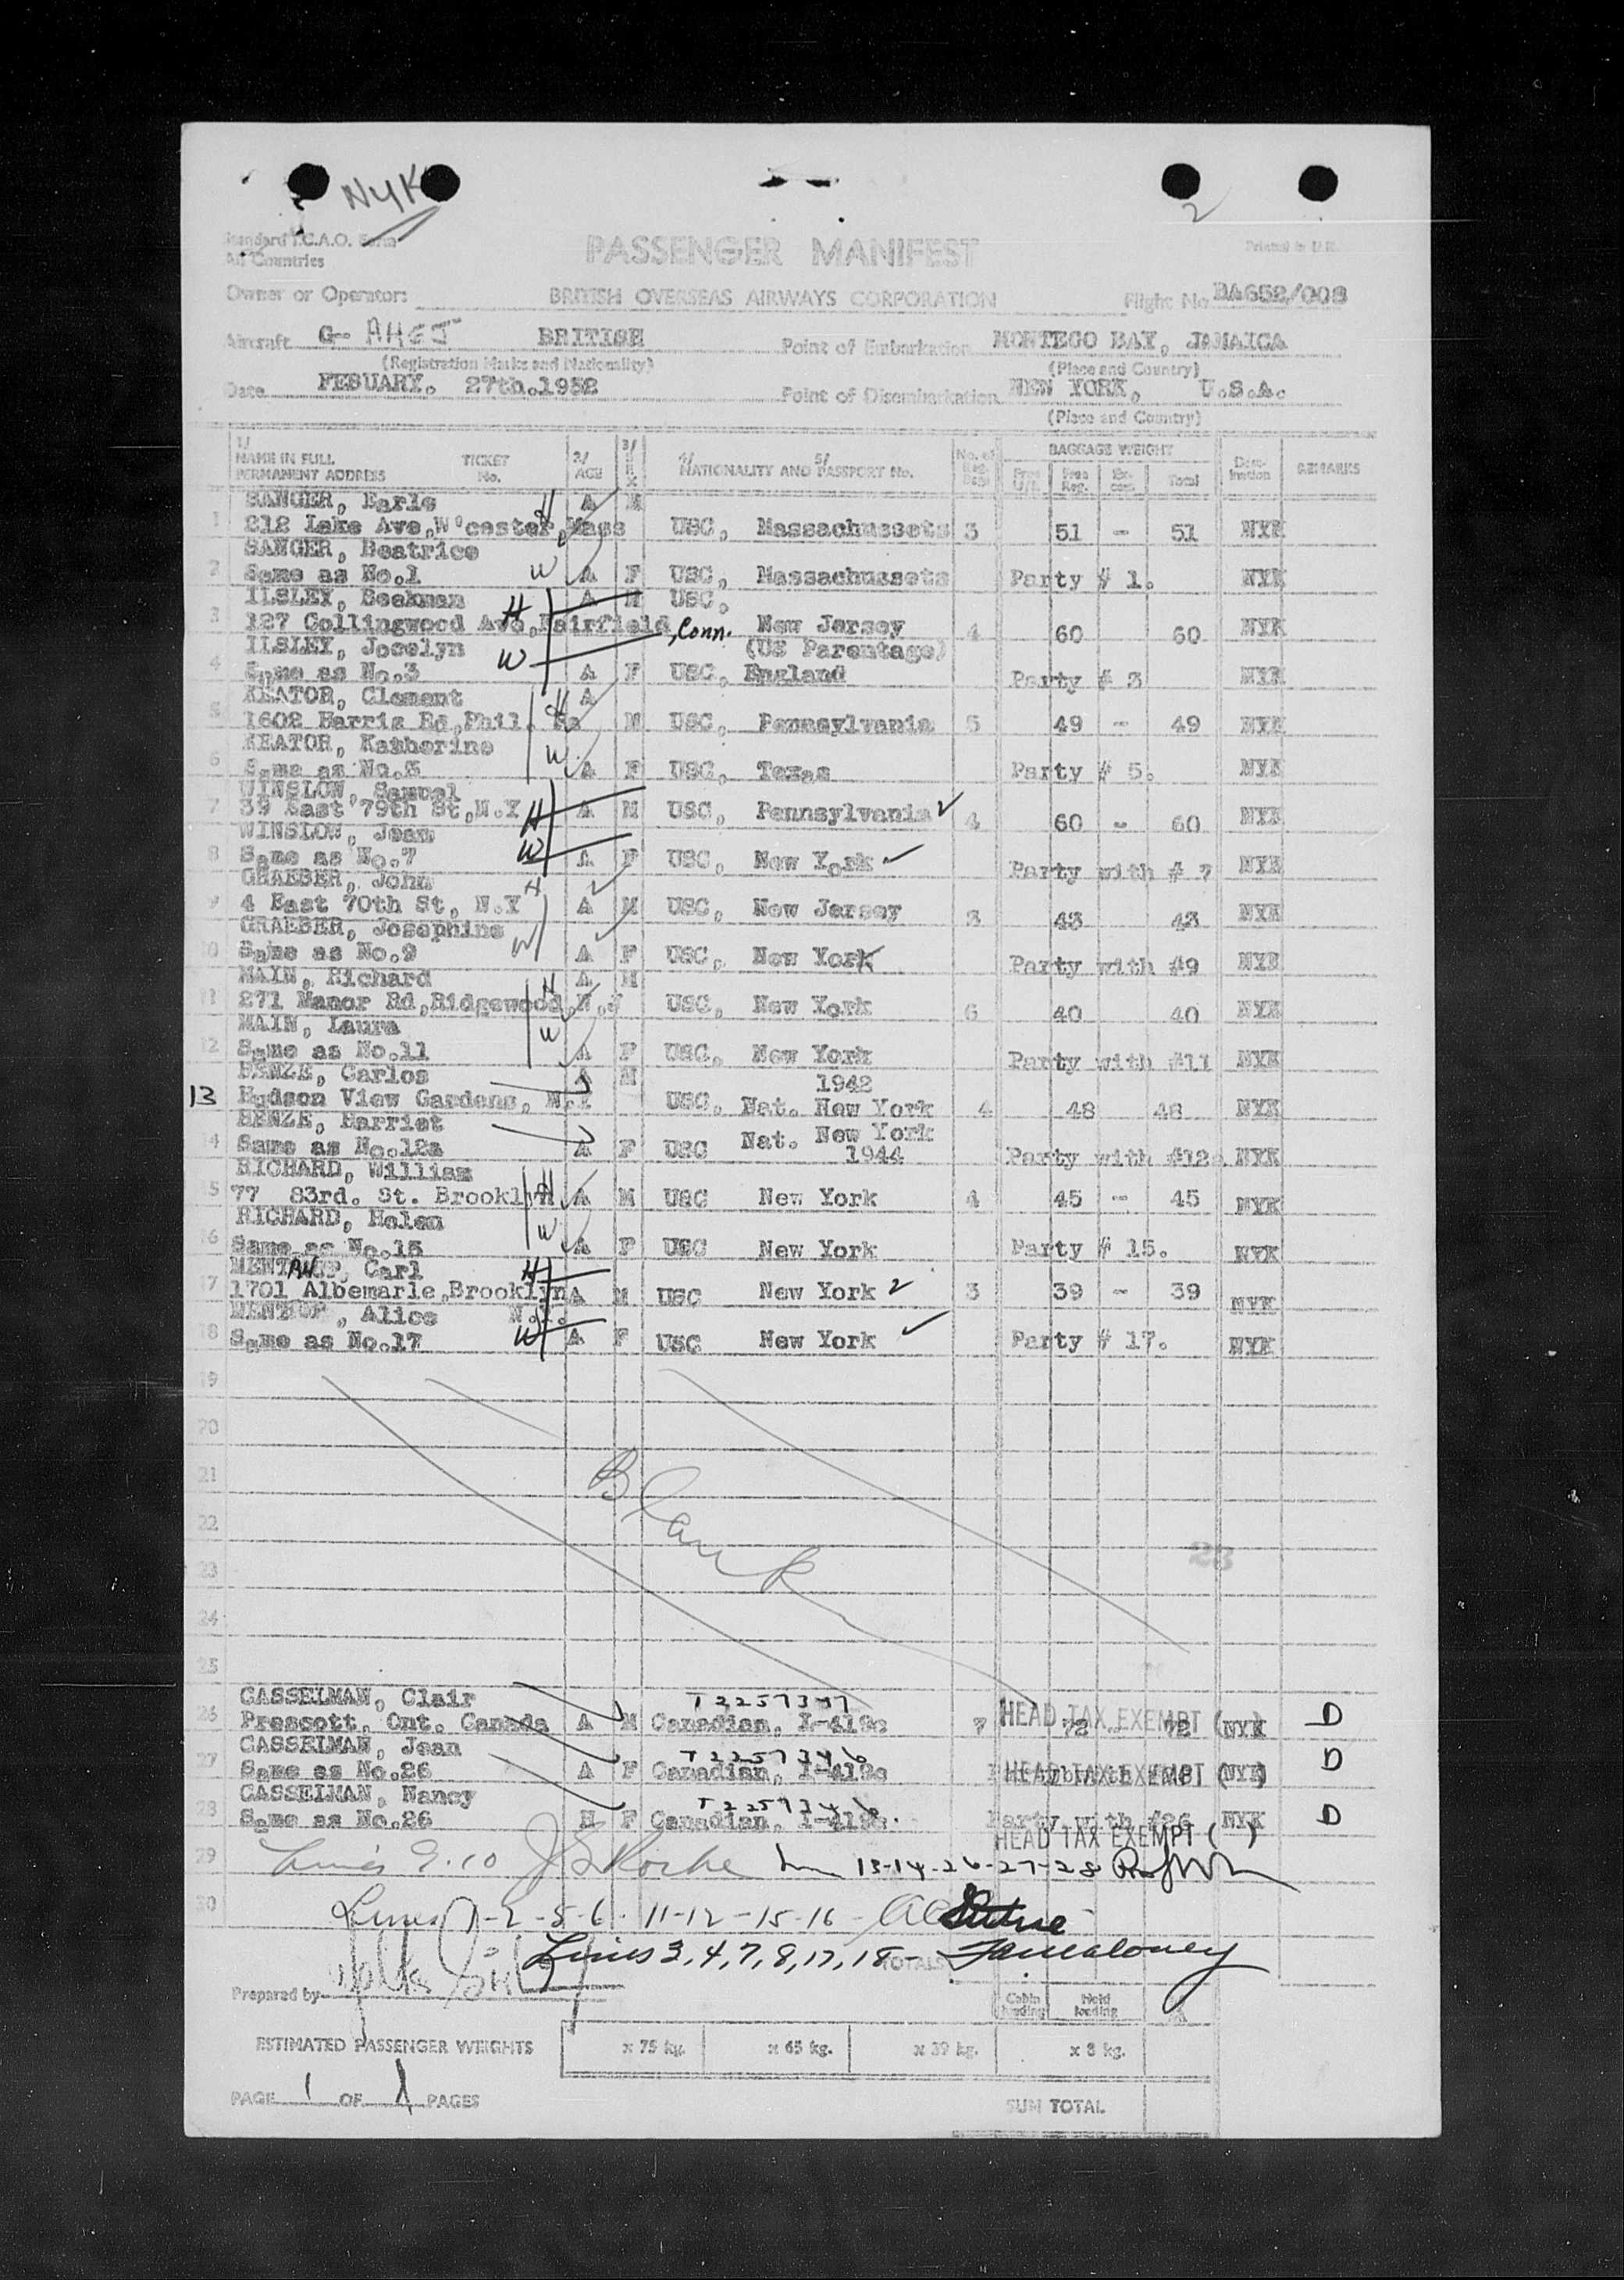 NYK
2
Standard I.C.A.O. Form
All Countries
PASSENGER MANIFEST
Printed in U.K.
Owner or Operator: BRITISH OVERSEAS AIRWAYS CORPORATION Flight No BA652/008
Aircraft G- AHEJ BRITISH Point of Embarkation MONTEGO BAY, JAMAICA
(Registration Marks and Nationality) (Place and Country)
Date FEBUARY. 27th.1952 Point of Disembarkation NEW YORK, U.S.A.
(Place and Country)
1/ NAME IN FULL PERMANENT ADDRESS TICKET No. 2/ AGE 3/ SEX 4/ 5/ NATIONALITY AND PASSPORT No. No. of BAGGAGE WEIGHT Free Reg. Total Destination REMARKS
SANGER, Earle H A M
1 212 Lake Ave,W'cester,Mass USC, Massachussets 3 51 - 51 NYK
SANGER, Beatrice
2 Same as No.1 W A F USC, Massachussets Party # 1. NYK
ILSLEY, Beekman H A M USC,
3 127 Collingwood Ave,Fairfield, Conn. New Jersey 4 60 60 NYK
ILSLEY, Jocelyn W (US Parentage)
4 Same as No.3 A F USC, England Party # 3 NYK
KEATOR, Clement H A
5 1602 Harris Rd,Phil. Pa M USC, Pennsylvania 5 49 - 49 NYK
KEATOR, Katherine W
6 Same as No.5 A F USC, Texas Party # 5. NYK
WINSLOW, Samuel
7 39 East 79th St,N.Y H A M USC, Pennsylvania 4 60 - 60 NYK
WINSLOW, Jean
8 Same as No.7 W A F USC, New York Party with # 7 NYK
GRAEBER, John H
9 4 East 70th St, N.Y A M USC, New Jersey 3 43 43 NYK
GRAEBER, Josephine W
10 Same as No.9 A F USC, New York Party with #9 NYK
MAIN, Richard H A M
11 271 Manor Rd,Ridgewood,N.J USC, New York 6 40 40 NYK
MAIN, Laura W
12 Same as No.11 A F USC, New York Party with #11 NYK
HENZE, Carlos A M 1942
13 Hudson View Gardens, N.Y USC, Nat. New York 4 48 48 NYK
HENZE, Harriet Nat. New York
14 Same as No.12a A F USC 1944 Party with #12a NYK
RICHARD, William H
15 77 83rd. St. Brooklyn A M USC New York 4 45 - 45 NYK
RICHARD, Helen W
16 Same as No.15 A F USC New York Party # 15. NYK
Carl H
17 1701 Albemarle,Brooklyn A M USC New York 3 39 - 39 NYK
MENTHOP, Alice N.Y.
18 Same as No.17 W A F USC New York Party # 17. NYK
19
20
21
Blank
22
23 23
24
25
CASSELMAN, Clair T2257347
26 Prescott, Ont. Canada A M Canadian, I-419c 7 HEAD TAX EXEMPT ( ) 72 72 NYK D
CASSELMAN, Jean T2257346
27 Same as No.26 A F Canadian, I-419c HEAD TAX EXEMPT ( ) NYK D
CASSELMAN, Nancy T2257346
28 Same as No.26 H F Canadian, I-419c. Party with #26 NYK D
HEAD TAX EXEMPT ( )
29 Lines 9.10 13-14-26-27-28
30 Lines 1-2-5-6-11-12-15-16-
Lines 3,4,7,8,17,18- TOTALS
Prepared by
Cabin loading Hold loading
ESTIMATED PASSENGER WEIGHTS x 75 kg. x 65 kg. x 39 kg. x 8 kg.
PAGE 1 OF 1 PAGES
SUM TOTAL